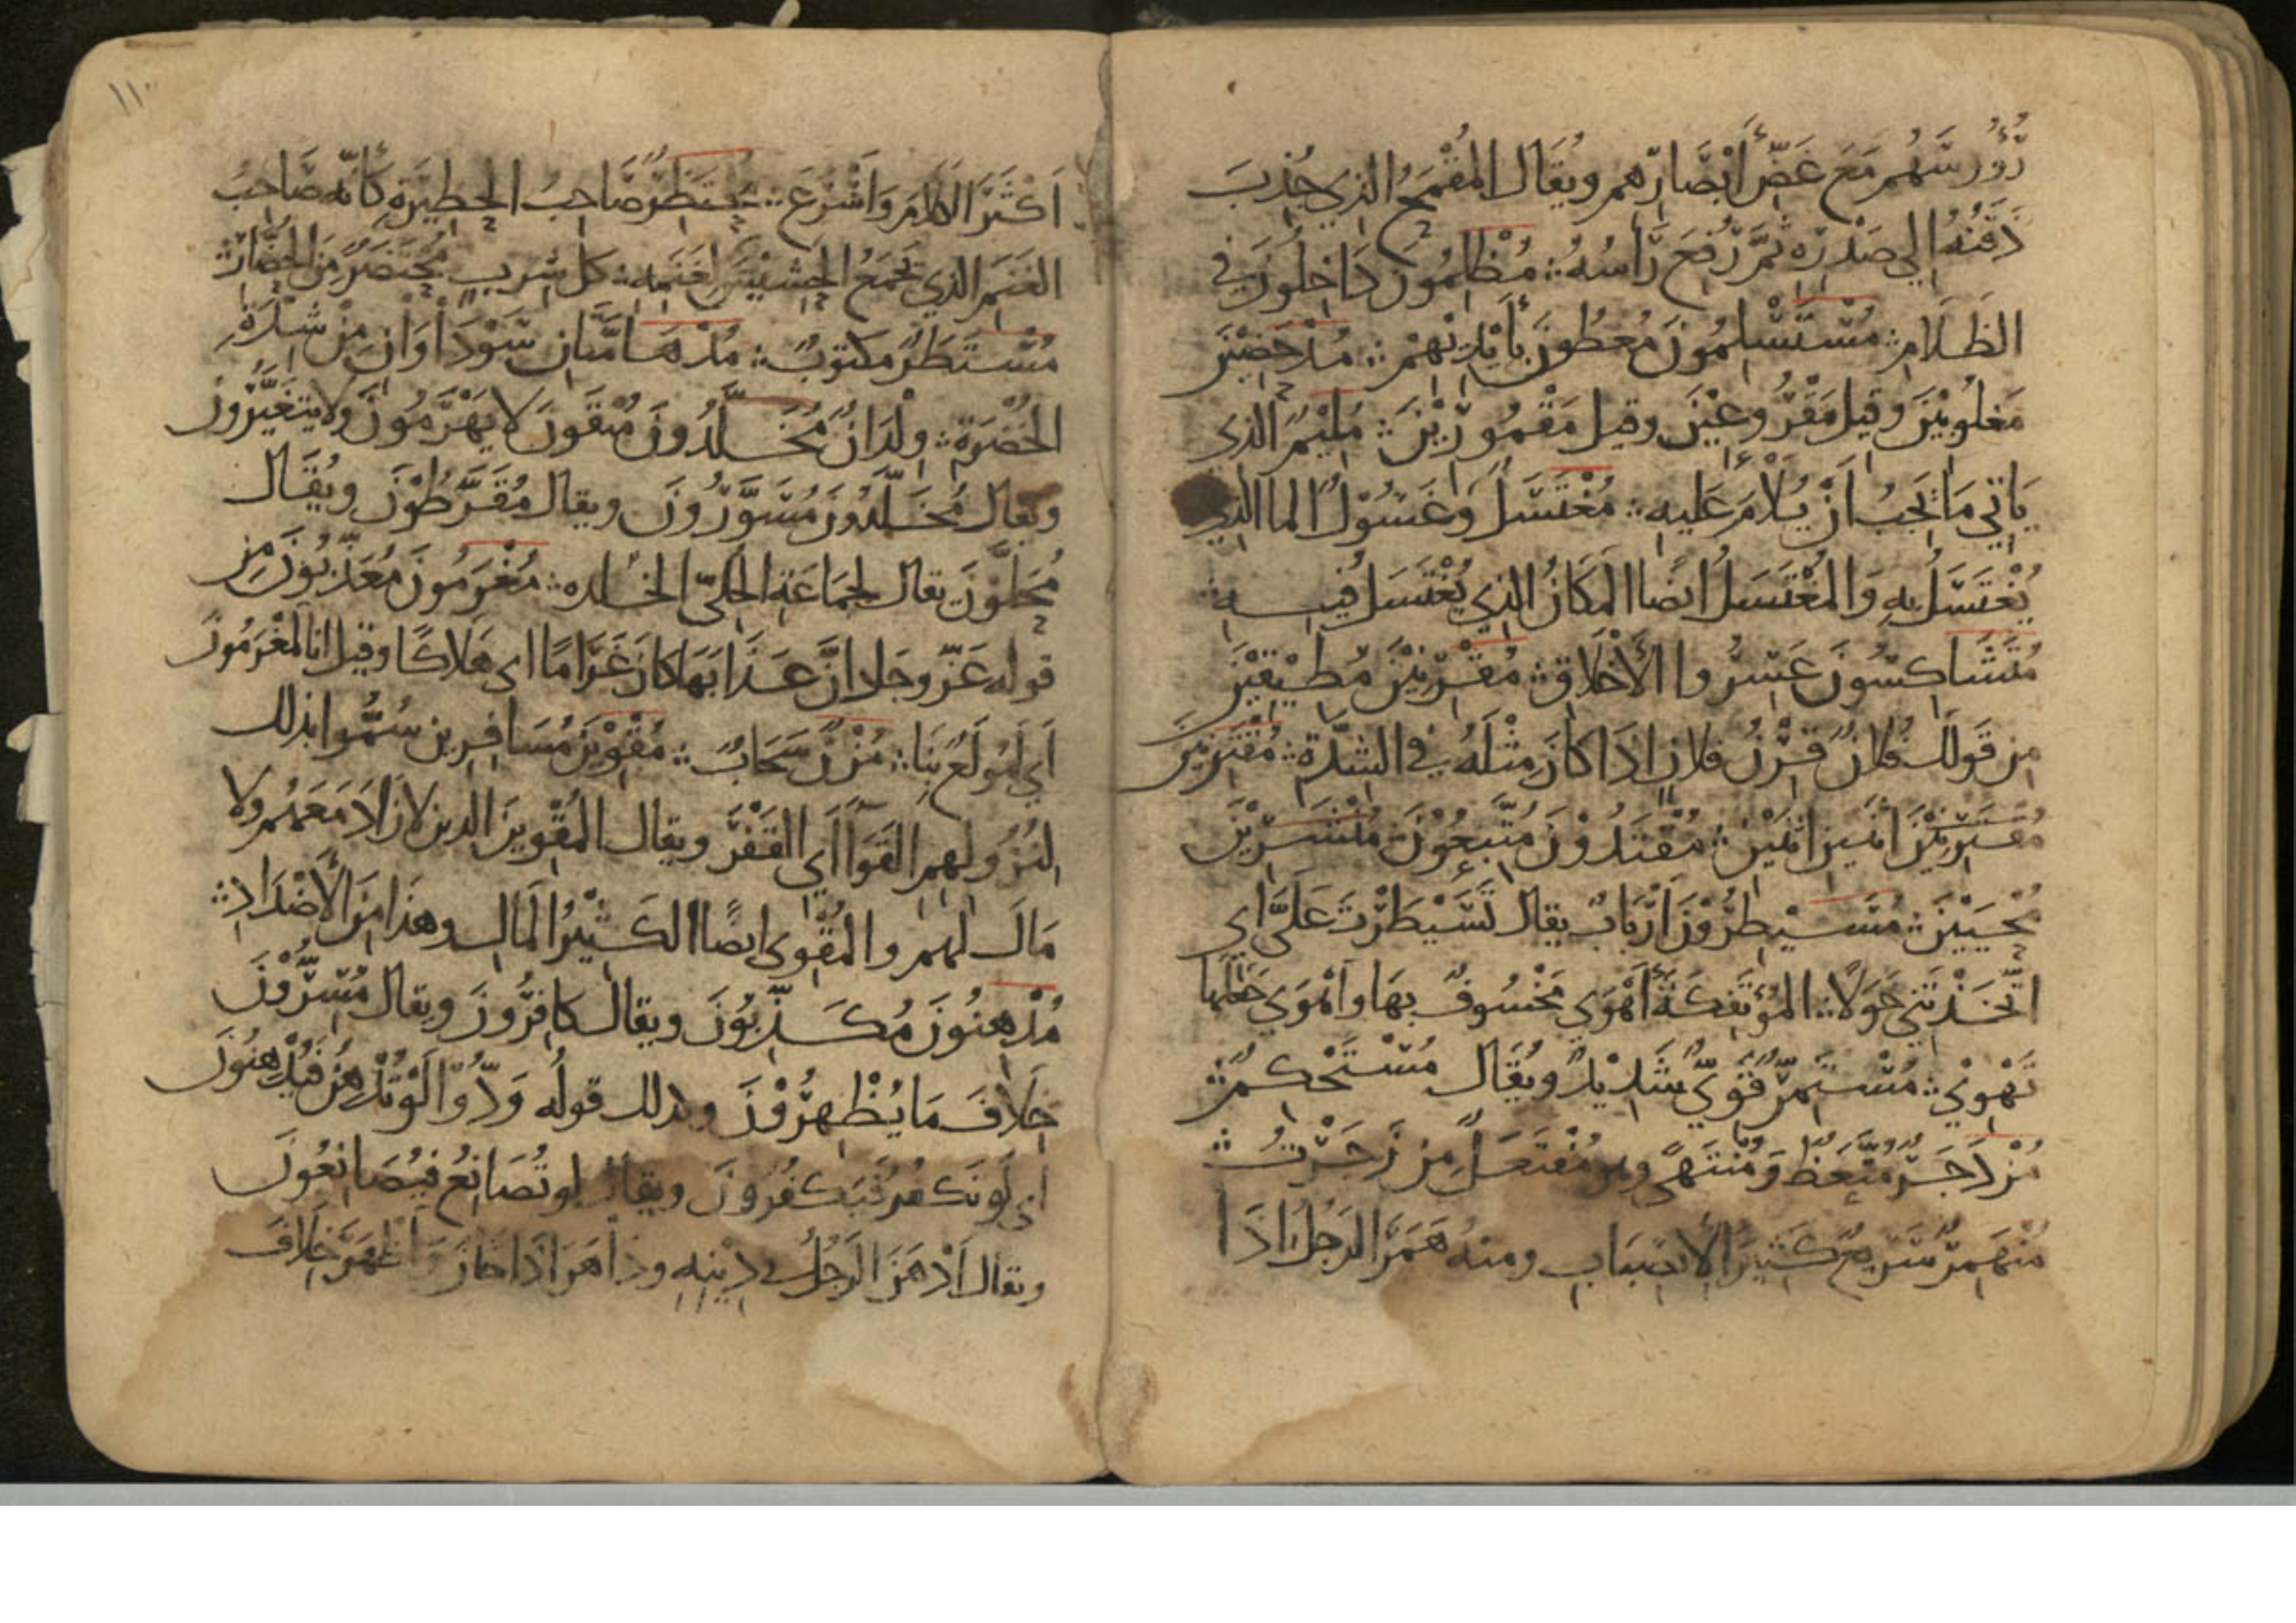 رُؤُوسَهُم مَعَ غَضِّ أَبْصَارِهِم وَيُقَال المُقْمَحُ الذِي جُذِبَ
ذَقَنُهُ إِلي صَدْرِهِ ثُمَّ رُفِعَ رَأسُهُ ∴ مُظْلِمُونَ دَاخِلُونَ في
الظَلَامِ ∴ مُسْتَسْلِمُونَ مُعطُونَ بِأَيْدِيْهِمْ ∴ مُدْحَضِيْنَ
مَغلُوبِيْنَ وقيل مَقْرُوعِيْنَ وقيل مَقْمُورِيْنَ ∴ مُلِيْمٌ الذي
يَاتِي مَا يَجِبُ اَنْ يُلَامَ عَلَيهِ ∴ مُغْتَسَلٌ وَغَسُوْلٌ الما الذي
يُغْتَسَلُ بِهِ وَالمُغْتَسَلُ ايضًا المَكَانُ الذِي يُغْتَسَلُ فِيــهِ ∴
مُتَشَاكِسُونَ عَسِرُوا الأَخْلَاقِ ∴ مُقْرِنِيْنَ مُطِيْقِيْنَ
مِن قَولِكَ فُلَانٌ قِرْنُ فلانٍ اِذَا كَانَ مِثْلَهُ في الشِدَّةِ ∴ مُقْتَرِنِيْنَ
اثنين اثنين ∴ مُقْتَدُوْنَ مُتَّبِعُوْنَ ∴ مُنْشَرِيْنَ
مُحْيَيْنَ ∴ مُسَيْطِرُوْنَ أَرْبَابٌ يقال تَسَيْطَرْتَ عَلَيَّ اي
اتَّخَذْتَنِي خَوَلًا ∴ المُؤْتَفِكَةَ أَهْوَى مَخْسُوفٌ بِهَا وأَهْوَي جَعَلَهَا
تَهْوِي ∴ مُسْتَمِرٌّ قَوِيٌّ شَدِيْدٌ وَيُقَال مُسْتَحْكِمٌ ∴
مُزْدَجَرٌ مُتَّعَظٌ وَمُنْتَهًى وهو مُفْتَعَلٌ مِنْ زَجَرْتُ ∴
مُنْهَمِرٌ سَرِيعٌ كَثِيرُ الأنصِبَابِ ومنه هَمَرَ الرَجُلُ اذَا
اَكْثَرَ الكَلَامَ وَاَسْرَعَ ∴ مُحْتَظِرٌ صَاحِبُ الحَظِيرَةِ كَأَنّه صَاحِبُ
الغَنَمِ الذي يَجمَعُ الحَشِيْشَ لِغَنَمِهِ ∴ كل شِربٍ مُحْتَضَرٌ مِنَ
مُسْتَطَرٌ مَكتوبٌ ∴ مُدْهَامَّتَانِ سَوْدَاوَانِ مِنْ شِدَّةِ
الخُضْرَةِ ∴ وِلْدَانٌ مُخَلَّدُونَ مُبْقَونَ لا يَهْرَمُونَ ولا يَتَغَيَّرُونَ
ويقال مُخَلَّدُونَ مُسَوَّرُونَ ويقال مُقَرَّطُوْنَ ويُقَال
مُحَلَّوْنَ يقال لجَمَاعَةِ الحُلِيّ الخلده ∴ مُغْرَمُونَ مُعَذَّبُونَ مِن
قوله عَزَّ وجَل ان عَذَابَهَا كَانَ غَرَامًا اي هَلَاكًا وقيل انا لمُغْرَمُونَ
أَي لَمُولَعٌ بِنَا ∴ مُزْنٌ سَحَابٌ ∴ مُقْوِيْنَ مُسَافِرِين سُمُّوا بذلك
لنُزُولِهِم القَوَاءَ اَي القَفْرَ ويقال المُقْوِينَ الذين لا زَادَ مَعَهُم ولا
مَالَ لهم والمُقْوِي ايضًا الكَثِيْرُ المَالِ وهذَا مِنَ الأَضْدَادِ ∴
مُدْهِنُونَ مُكَذِّبُونَ ويقال كافِرُونَ ويقال مُسِرُّوْنَ
خِلَافَ مَا يُظْهِرُوْنَ وكذلك قولُه وَدُّوْا لَوْ تُدْهِنُ فَيُدْهِنُونَ
اي لَو تَكْفُرُ فَيَكفُرُونَ ويقال لو تُصَانِعُ فَيُصَانِعُونَ
ويقال أَدْهَنَ الرَجُلُ في دِيْنِهِ وداهَنَ اذَا خَانَ وَأَظهَرَ خِلَافَ